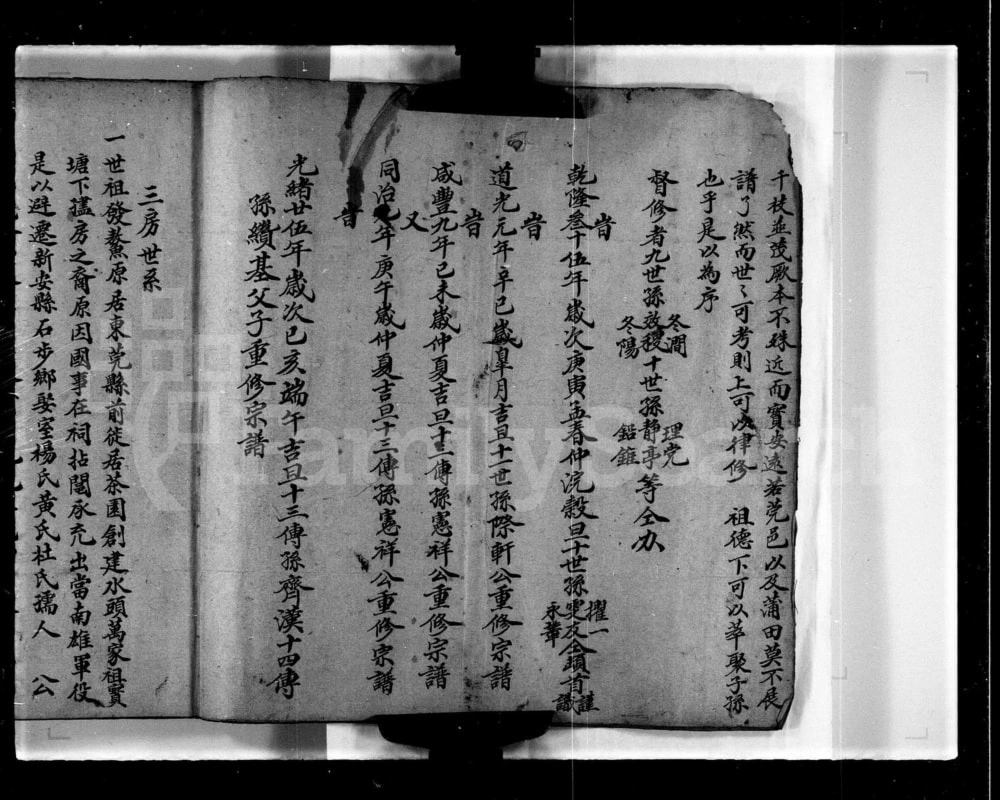 千枝並茂厥本不殊近而寶安遠若莞邑以及蒲田莫不展
譜了然而世〻可考則上可以律修 祖德下可以萃聚子孫
也乎是以為序
督修者九世孫效稷冬澗冬陽十世孫靜亭理完鉛錐等仝办
旹
乾隆叁十伍年歲次庚寅孟春仲浣穀旦十世孫擢一雯友永華仝頭首謹識
旹
道光元年辛巳歲皐月吉旦十一世孫際軒公重修宗譜
旹
咸豐九年己未歲仲夏吉旦十三傳孫憲祥公重修宗譜
又
同治九年庚午歲仲夏吉旦十三傳孫憲祥公重修宗譜
旹
光緒廿伍年歲次己亥端午吉旦十三傳孫齊漢十四傳
孫纘基父子重修宗譜
三房世系
一世祖發鰲原居東莞縣前徙居茶園創建水頭萬家祖實
塘下㩉房之裔原因國事在祠拈鬮承充出當南雄軍役
是以避遷新安縣石步鄉娶室楊氏黃氏杜氏孺人 公
FamilySearch